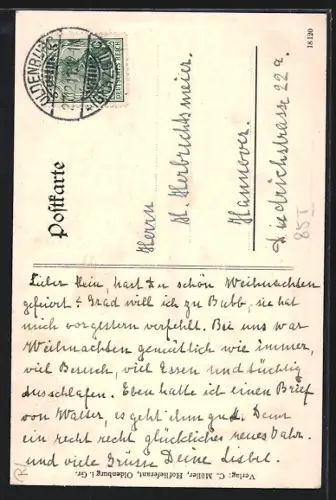 Postkarte
18120
OLDENBURG
DEUTSCHES REICH
Herrn
H. Herbrechtsmeier.
Hannover.
Friedrichstrasse 22a.
85 I
Lieber Hein, hast Du schön Weihnachten
gefeiert? Grad will ich zu Bubb, sie hat
mich vorgestern verfehlt. Bei uns war
Weihnachten gemütlich wie immer,
viel Besuch, viel Essen und tüchtig
ausschlafen. Eben hatte ich einen Brief
von Walter, es geht ihm gut. Denn
ein recht recht glückliches neues Jahr.
und viele Grüsse Deine Liesbel.
Verlag: C. Müller, Hoflieferant, Oldenburg i. Gr.